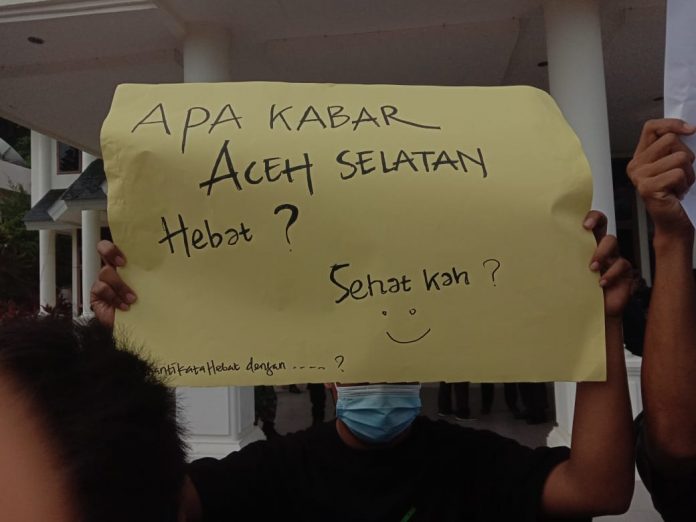 APA KABAR
ACEH SELATAN
Hebat ?
Sehat kah ?
kata Hebat dengan ..... ?